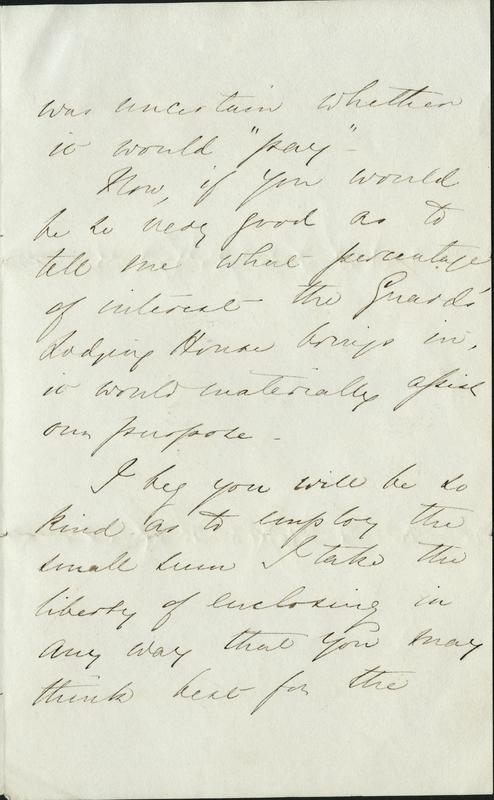 was uncertain whether
it would "pay" -
Now, if you would
be so very good as to
tell me what percentage
of interest the Guards'
Lodging House brings in,
it would materially assist
our purpose -
I beg you will be so
kind as to employ the
small sum I take the
liberty of enclosing in
any way that you may
think best for the